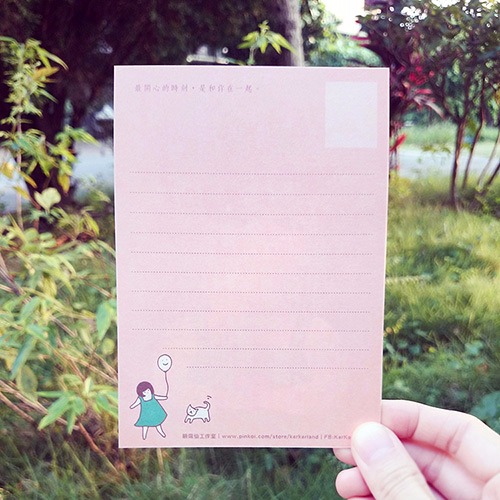 最開心的時刻，是和你在一起。
工作室 | www.pinkoi.com/store/karkarland | FB:Karka